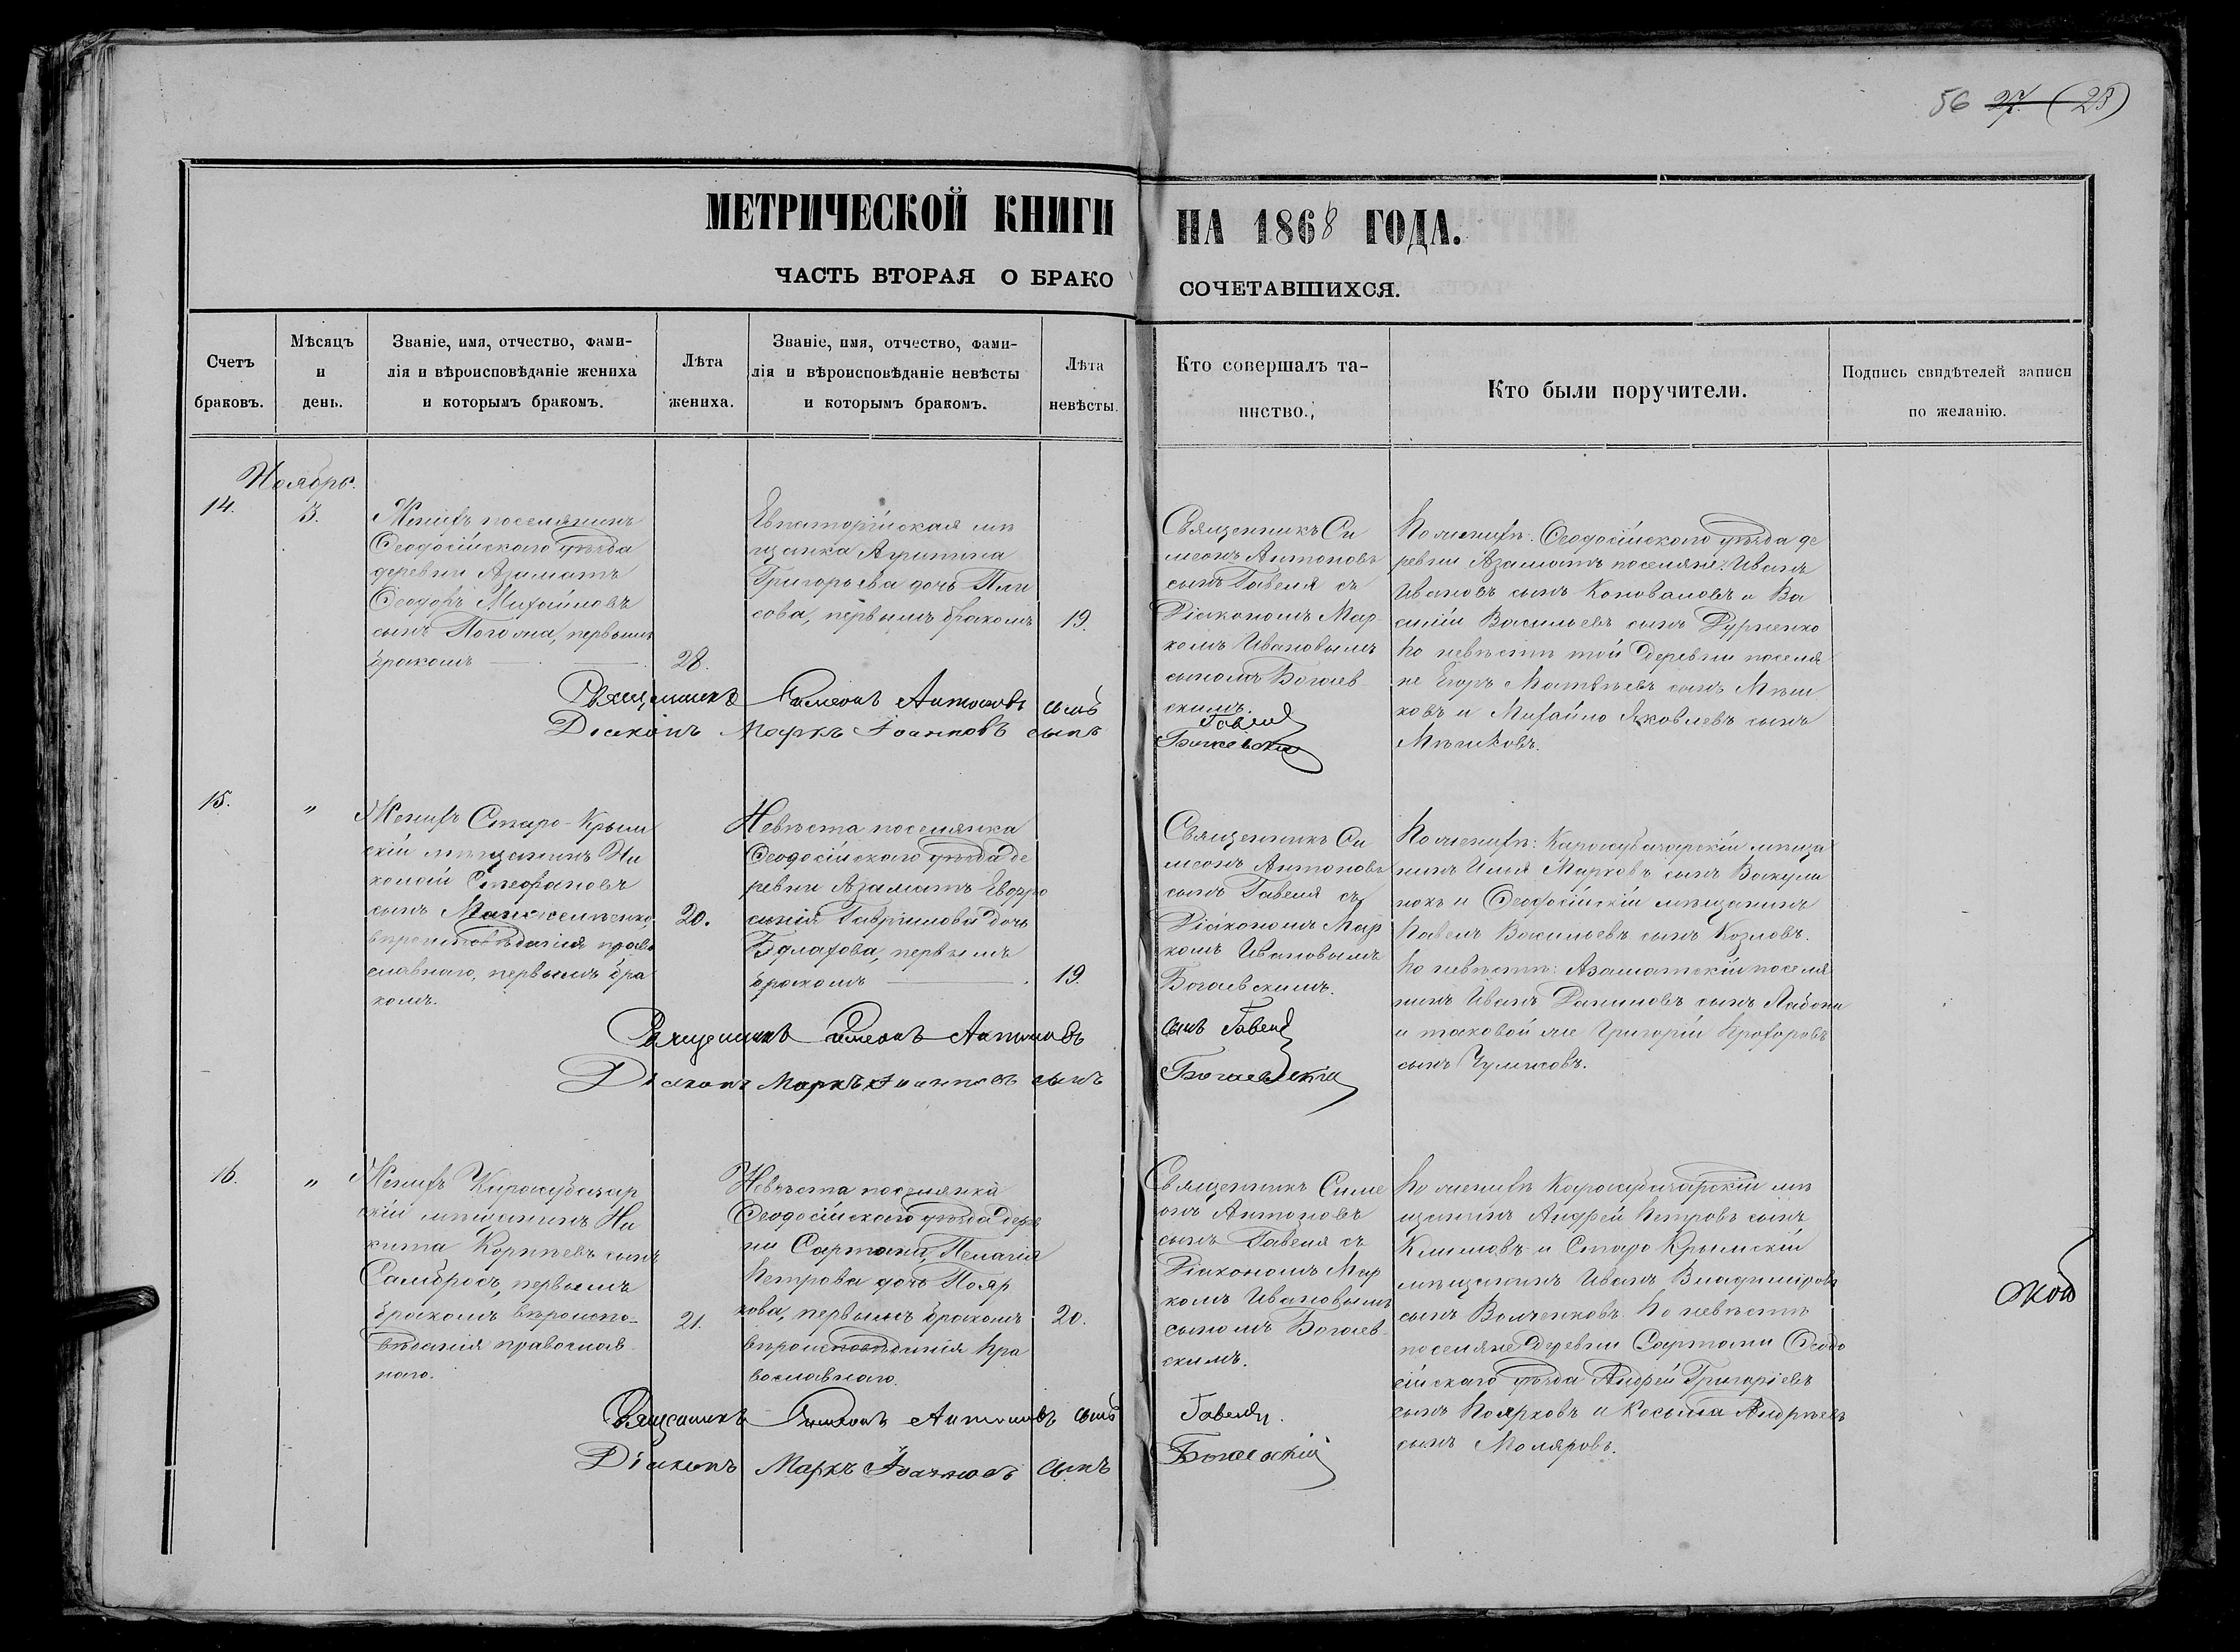 56 27. (28)
МЕТРИЧЕСКОЙ КНИГИ НА 1868 ГОДА.
ЧАСТЬ ВТОРАЯ О БРАКО СОЧЕТАВШИХСЯ.
Счетъ браковъ.
Мѣсяцъ и день.
Званіе, имя, отчество, фами-
лія и вѣроисповѣданіе жениха
и которымъ бракомъ.
Лѣта жениха.
Званіе, имя, отчество, фами-
лія и вѣроисповѣданіе невѣсты
и которымъ бракомъ.
Лѣта невѣсты.
Кто совершалъ та-
инство.
Кто были поручители.
Подпись свидѣтелей записи
по желанію.
Ноябрь.
14.
3.
Женихъ поселянинъ
Ѳеодосійскаго уѣзда
деревни Азаматъ
Ѳеодоръ Михайловъ
сынъ первымъ
бракомъ
28.
Евпаторійская мѣ
щанка
Григорьева дочь Пли
сова, первымъ бракомъ
19.
Священникъ Си
меонъ Антоновъ
сынъ Гавеля съ
Діакономъ Мар
комъ Ивановымъ
сыномъ Богаев
скимъ.
По женихѣ: Ѳеодосійскаго уѣзда де
ревни Азаматъ поселяне: Иванъ
Ивановъ сынъ Коноваловъ и Ва
силій Васильевъ сынъ
По невѣстѣ той деревни поселя
не Егоръ Матвѣевъ сынъ Мѣш
ковъ и Михайло Яковлевъ сынъ
Мѣшковъ.
Священникъ Симеонъ Антоновъ сынъ Гавеля
Діаконъ Маркъ Іоанновъ сынъ Богаевскій
15.
"
Женихъ Старо-Крым
скій мѣщанинъ Ни
колай Стефановъ
сынъ
вѣроисповѣданія право
славнаго, первымъ бра
комъ.
20.
Невѣста поселянка
Ѳеодосійскаго уѣзда де
ревни Азаматъ Евфро
синія Гавріилова дочь
первымъ
бракомъ
19.
Священникъ Си
меонъ Антоновъ
сынъ Гавеля съ
Діакономъ Мар
комъ Ивановымъ
Богаевскимъ.
По женихѣ: Карасубазарскій мѣща
нинъ Илія Марковъ сынъ Вакули
и Ѳеодосійскій мѣщанинъ
Павелъ Васильевъ сынъ Козловъ.
По невѣстѣ: Азаматскій поселя
нинъ Иванъ Даниловъ сынъ
и таковой же Григорій Прохоровъ
сынъ
Священникъ Симеонъ Антоновъ сынъ Гавеля
Діаконъ Маркъ Іоанновъ сынъ Богаевскій
16.
"
Женихъ Карасубазар
скій мѣщанинъ Ни
кита Корнѣевъ сынъ
первымъ
бракомъ вѣроиспо-
вѣданія православ
наго.
21.
Невѣста поселянка
Ѳеодосійскаго уѣзда дерев
ни Сартана, Пелагія
Петрова дочь Пояр
кова, первымъ бракомъ
вѣроисповѣданія Пра
вославнаго.
20.
Священникъ Симе
онъ Антоновъ
сынъ Гавеля съ
Діакономъ Мар
комъ Ивановымъ
сыномъ Богаев
скимъ.
По женихѣ Карасубазарскій мѣ
щанинъ Андрей Петровъ сынъ
Климовъ и Старо Крымскій
мѣщанинъ Иванъ Владиміровъ
сынъ Волченковъ. По невѣстѣ
поселяне деревни Сартаны Ѳеодо
сійскаго уѣзда Андрей Григоріевъ
сынъ Поярковъ и Косьма Андрѣевъ
сынъ Моляровъ.
Священникъ Симеонъ Антоновъ сынъ Гавеля.
Діаконъ Маркъ Іоанновъ сынъ Богаевскій